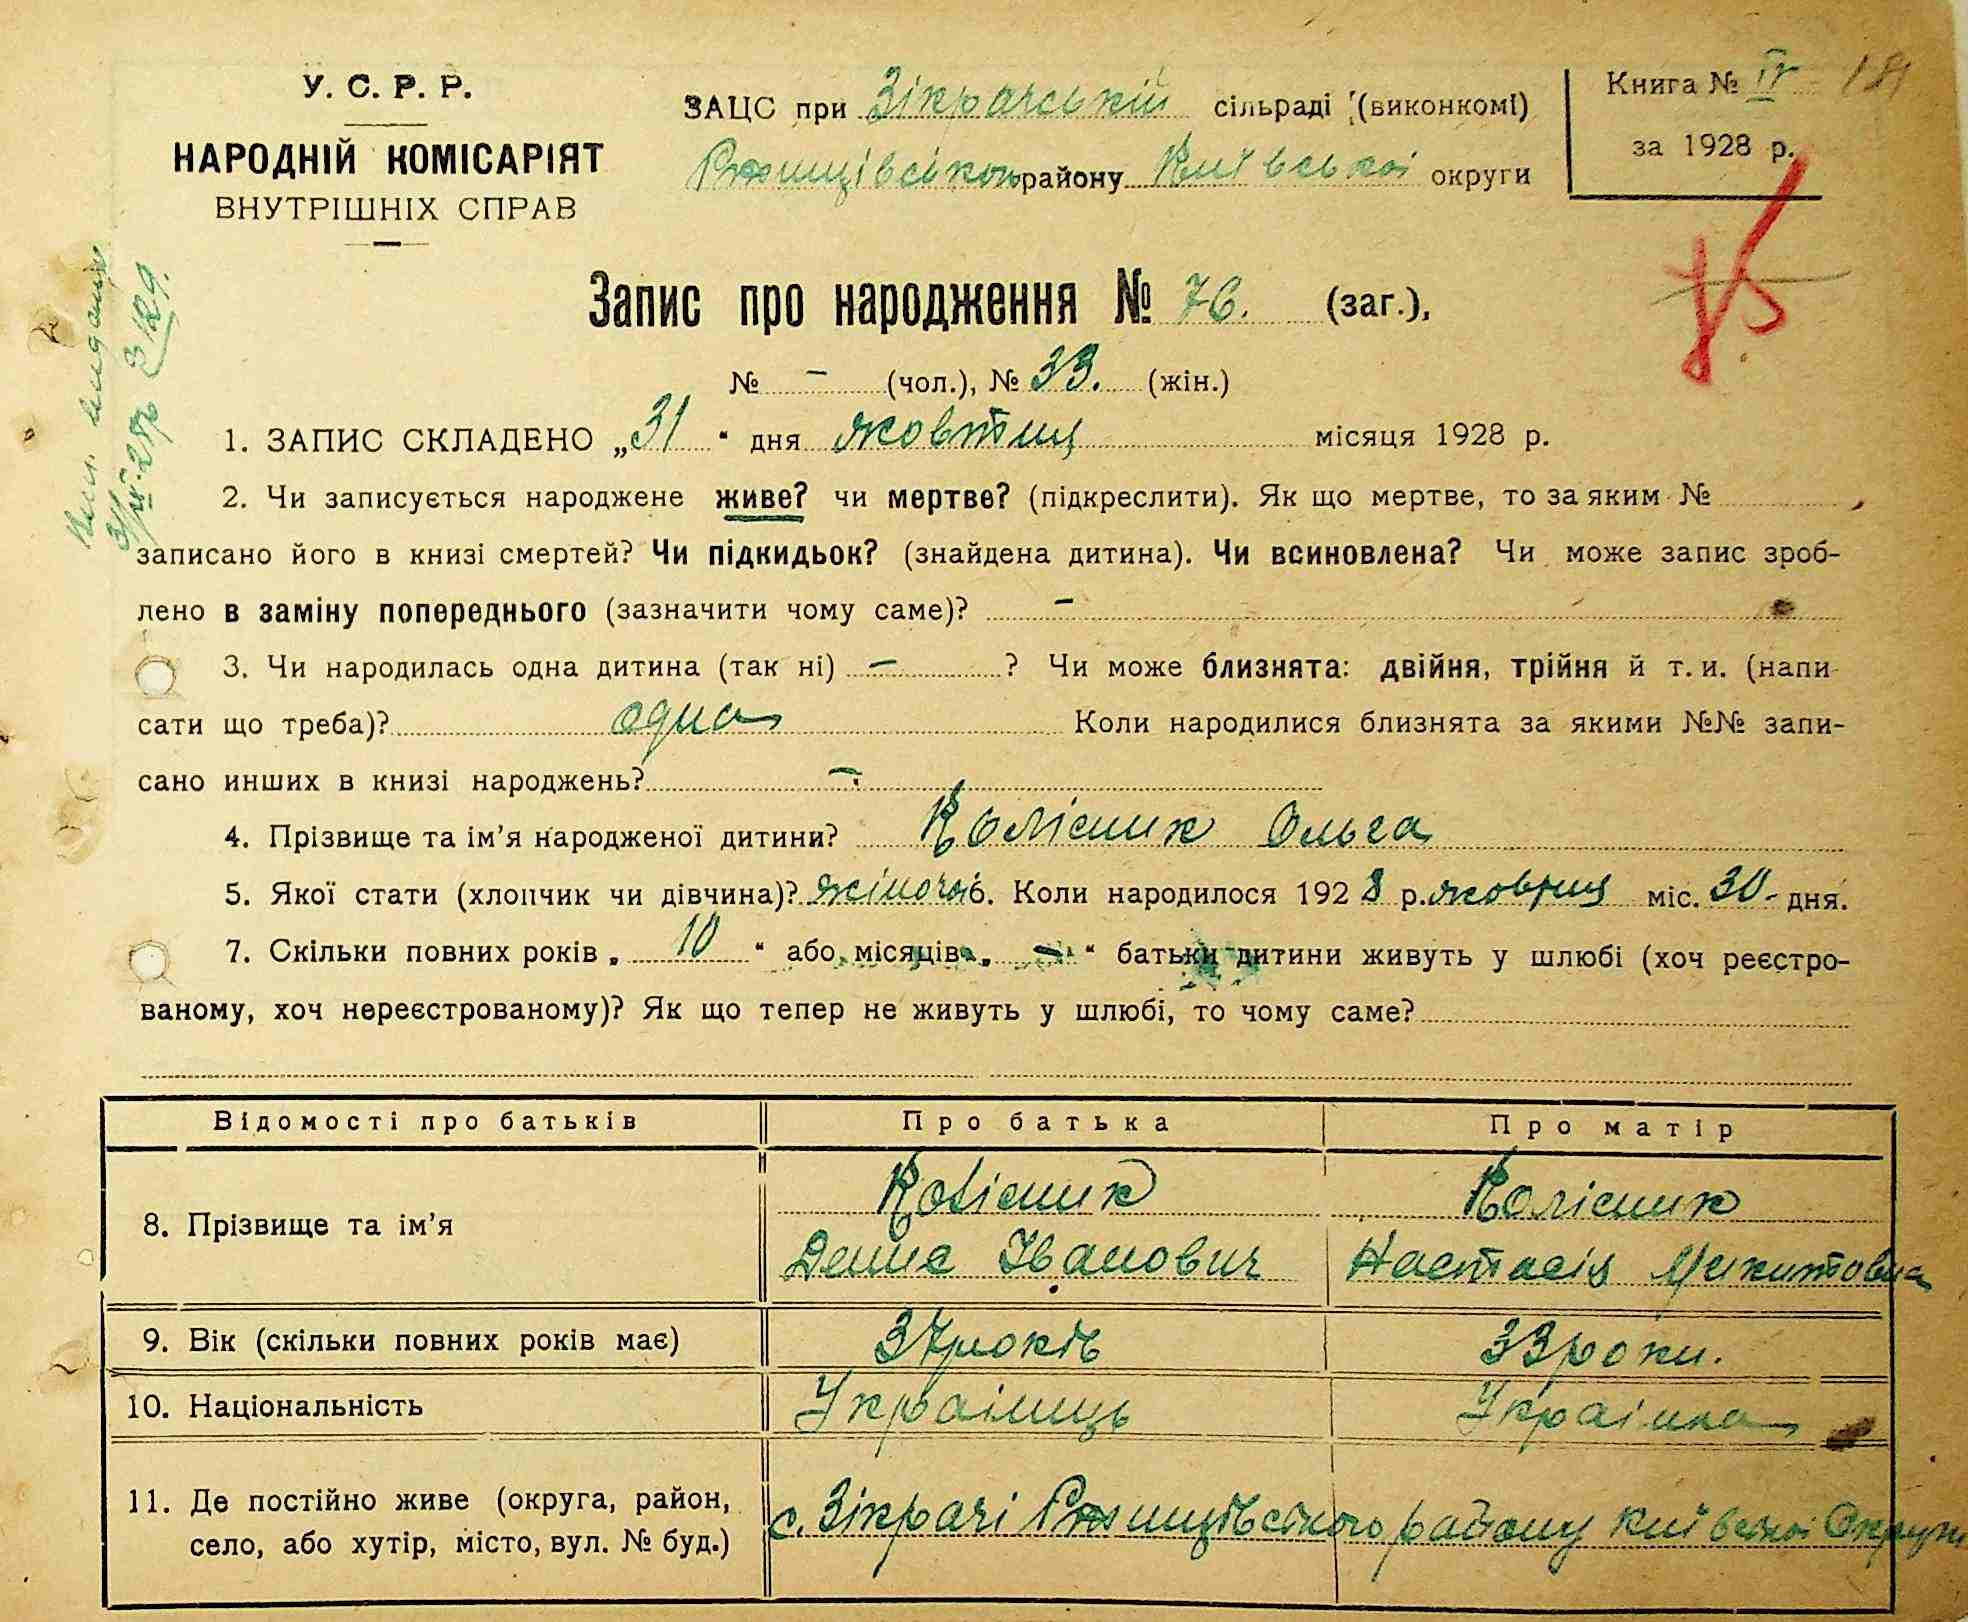 У. С. Р. Р.
НАРОДНІЙ КОМІСАРІЯТ
ВНУТРІШНІХ СПРАВ
ЗАЦС при Зікрачській сільраді (виконкомі)
Ржищівського району Київської округи
Книга № IV 181
за 1928 р.
Запис про народження № 76. (заг.),
№ – (чол.), № 33. (жін.)
1. ЗАПИС СКЛАДЕНО „31 “ дня жовтня місяця 1928 р.
2. Чи записується народжене живе? чи мертве? (підкреслити). Як що мертве, то за яким №
записано його в книзі смертей? Чи підкидьок? (знайдена дитина). Чи всиновлена? Чи може запис зроб-
лено в заміну попереднього (зазначити чому саме)? –
3. Чи народилась одна дитина (так ні) – ? Чи може близнята: двійня, трійня й т. и. (напи-
сати що треба)? одна Коли народилися близнята за якими №№ запи-
сано инших в книзі народжень? –
4. Прізвище та ім’я народженої дитини? Колісник Ольга
5. Якої стати (хлопчик чи дівчина)? жіночої 6. Коли народилося 1928 р. жовтня міс. 30 дня.
7. Скільки повних років „ 10 “ або місяців „ – “ батьки дитини живуть у шлюбі (хоч реєстро-
ваному, хоч нереєстрованому)? Як що тепер не живуть у шлюбі, то чому саме?
Відомості про батьків Про батька Про матір
8. Прізвище та ім’я Колісник Колісник
Денис Іванович Настасія Микитовна
9. Вік (скільки повних років має) 37 років 33 роки.
10. Національність Українць Українка
11. Де постійно живе (округа, район,
село, або хутір, місто, вул. № буд.)
с. Зікрачі Ржищівського району Київської Округи